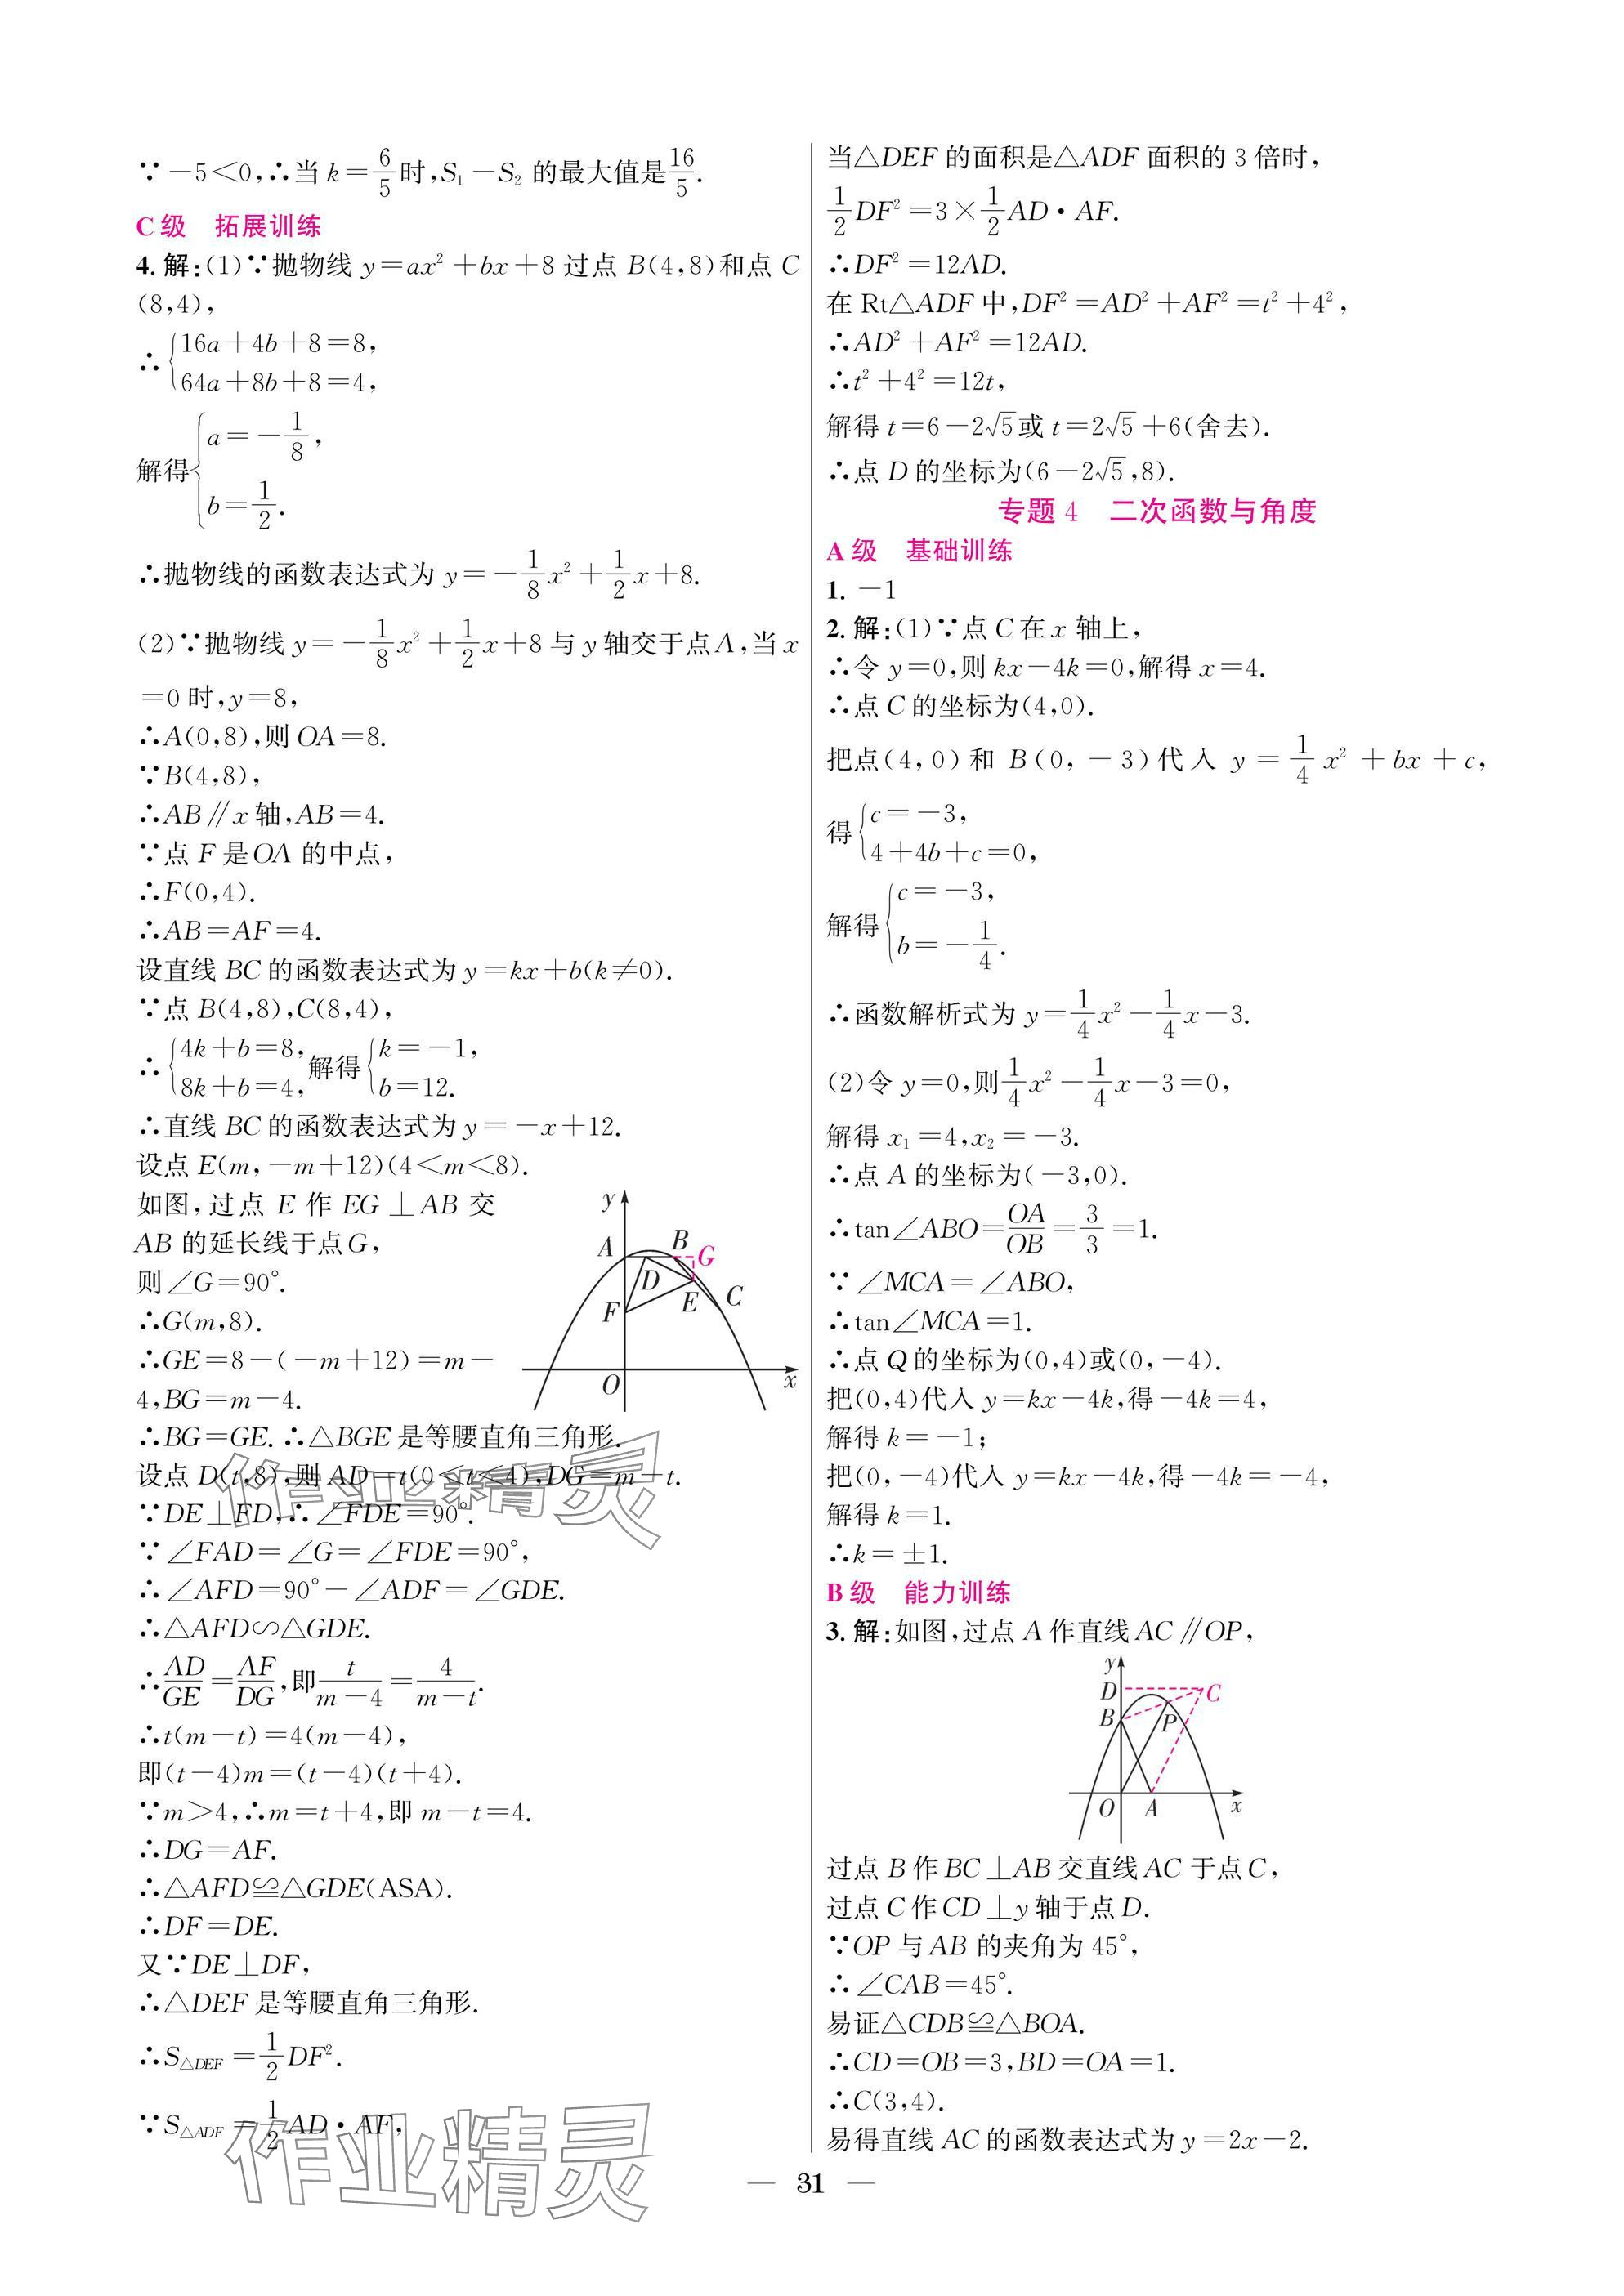 ∵－5＜0,∴当 k＝6/5 时,S₁－S₂ 的最大值是16/5.
C 级　拓展训练
4. 解:(1)∵抛物线 y＝ax²＋bx＋8 过点 B(4,8)和点 C
(8,4),
∴{16a＋4b＋8＝8,
64a＋8b＋8＝4,
解得{a＝－1/8,
b＝1/2.
∴抛物线的函数表达式为 y＝－1/8x²＋1/2x＋8.
(2)∵抛物线 y＝－1/8x²＋1/2x＋8 与 y 轴交于点A,当 x
＝0 时,y＝8,
∴A(0,8),则 OA＝8.
∵B(4,8),
∴AB∥x 轴,AB＝4.
∵点 F 是 OA 的中点,
∴F(0,4).
∴AB＝AF＝4.
设直线 BC 的函数表达式为 y＝kx＋b(k≠0).
∵点 B(4,8),C(8,4),
∴{4k＋b＝8,
8k＋b＝4,解得{k＝－1,
b＝12.
∴直线 BC 的函数表达式为 y＝－x＋12.
设点 E(m,－m＋12)(4＜m＜8).
如图,过点 E 作 EG⊥AB 交
AB 的延长线于点G,
则∠G＝90°.
∴G(m,8).
∴GE＝8－(－m＋12)＝m－
4,BG＝m－4.
y
A
B
G
D
E
C
F
O
x
∴BG＝GE. ∴△BGE 是等腰直角三角形.
设点 D(t,8),则 AD＝t(0＜t＜4),DG＝m－t.
∵DE⊥FD,∴∠FDE＝90°.
作业精灵
∵∠FAD＝∠G＝∠FDE＝90°,
∴∠AFD＝90°－∠ADF＝∠GDE.
∴△AFD∽△GDE.
∴AD/GE＝AF/DG,即t/(m－4)＝4/(m－t).
∴t(m－t)＝4(m－4),
即(t－4)m＝(t－4)(t＋4).
∵m＞4,∴m＝t＋4,即 m－t＝4.
∴DG＝AF.
∴△AFD≌△GDE(ASA).
∴DF＝DE.
又∵DE⊥DF,
∴△DEF 是等腰直角三角形.
∴S△DEF＝1/2DF².
∵S△ADF＝1/2AD·AF,
作业精灵
当△DEF 的面积是△ADF 面积的 3 倍时,
1/2DF²＝3×1/2AD·AF.
∴DF²＝12AD.
在 Rt△ADF 中,DF²＝AD²＋AF²＝t²＋4²,
∴AD²＋AF²＝12AD.
∴t²＋4²＝12t,
解得 t＝6－2√5或 t＝2√5＋6(舍去).
∴点 D 的坐标为(6－2√5,8).
专题 4　二次函数与角度
A 级　基础训练
1. －1
2. 解:(1)∵点 C 在 x 轴上,
∴令 y＝0,则 kx－4k＝0,解得 x＝4.
∴点 C 的坐标为(4,0).
把点(4,0)和 B(0,－3)代入 y＝1/4x²＋bx＋c,
得{c＝－3,
4＋4b＋c＝0,
解得{c＝－3,
b＝－1/4.
∴函数解析式为 y＝1/4x²－1/4x－3.
(2)令 y＝0,则1/4x²－1/4x－3＝0,
解得 x₁＝4,x₂＝－3.
∴点 A 的坐标为(－3,0).
∴tan∠ABO＝OA/OB＝3/3＝1.
∵∠MCA＝∠ABO,
∴tan∠MCA＝1.
∴点 Q 的坐标为(0,4)或(0,－4).
把(0,4)代入 y＝kx－4k,得－4k＝4,
解得 k＝－1;
把(0,－4)代入 y＝kx－4k,得－4k＝－4,
解得 k＝1.
∴k＝±1.
B 级　能力训练
3. 解:如图,过点 A 作直线 AC∥OP,
y
D
C
B
P
O
A
x
过点 B 作 BC⊥AB 交直线 AC 于点 C,
过点 C 作 CD⊥y 轴于点 D.
∵OP 与 AB 的夹角为 45°,
∴∠CAB＝45°.
易证△CDB≌△BOA.
∴CD＝OB＝3,BD＝OA＝1.
∴C(3,4).
易得直线 AC 的函数表达式为 y＝2x－2.
— 31 —